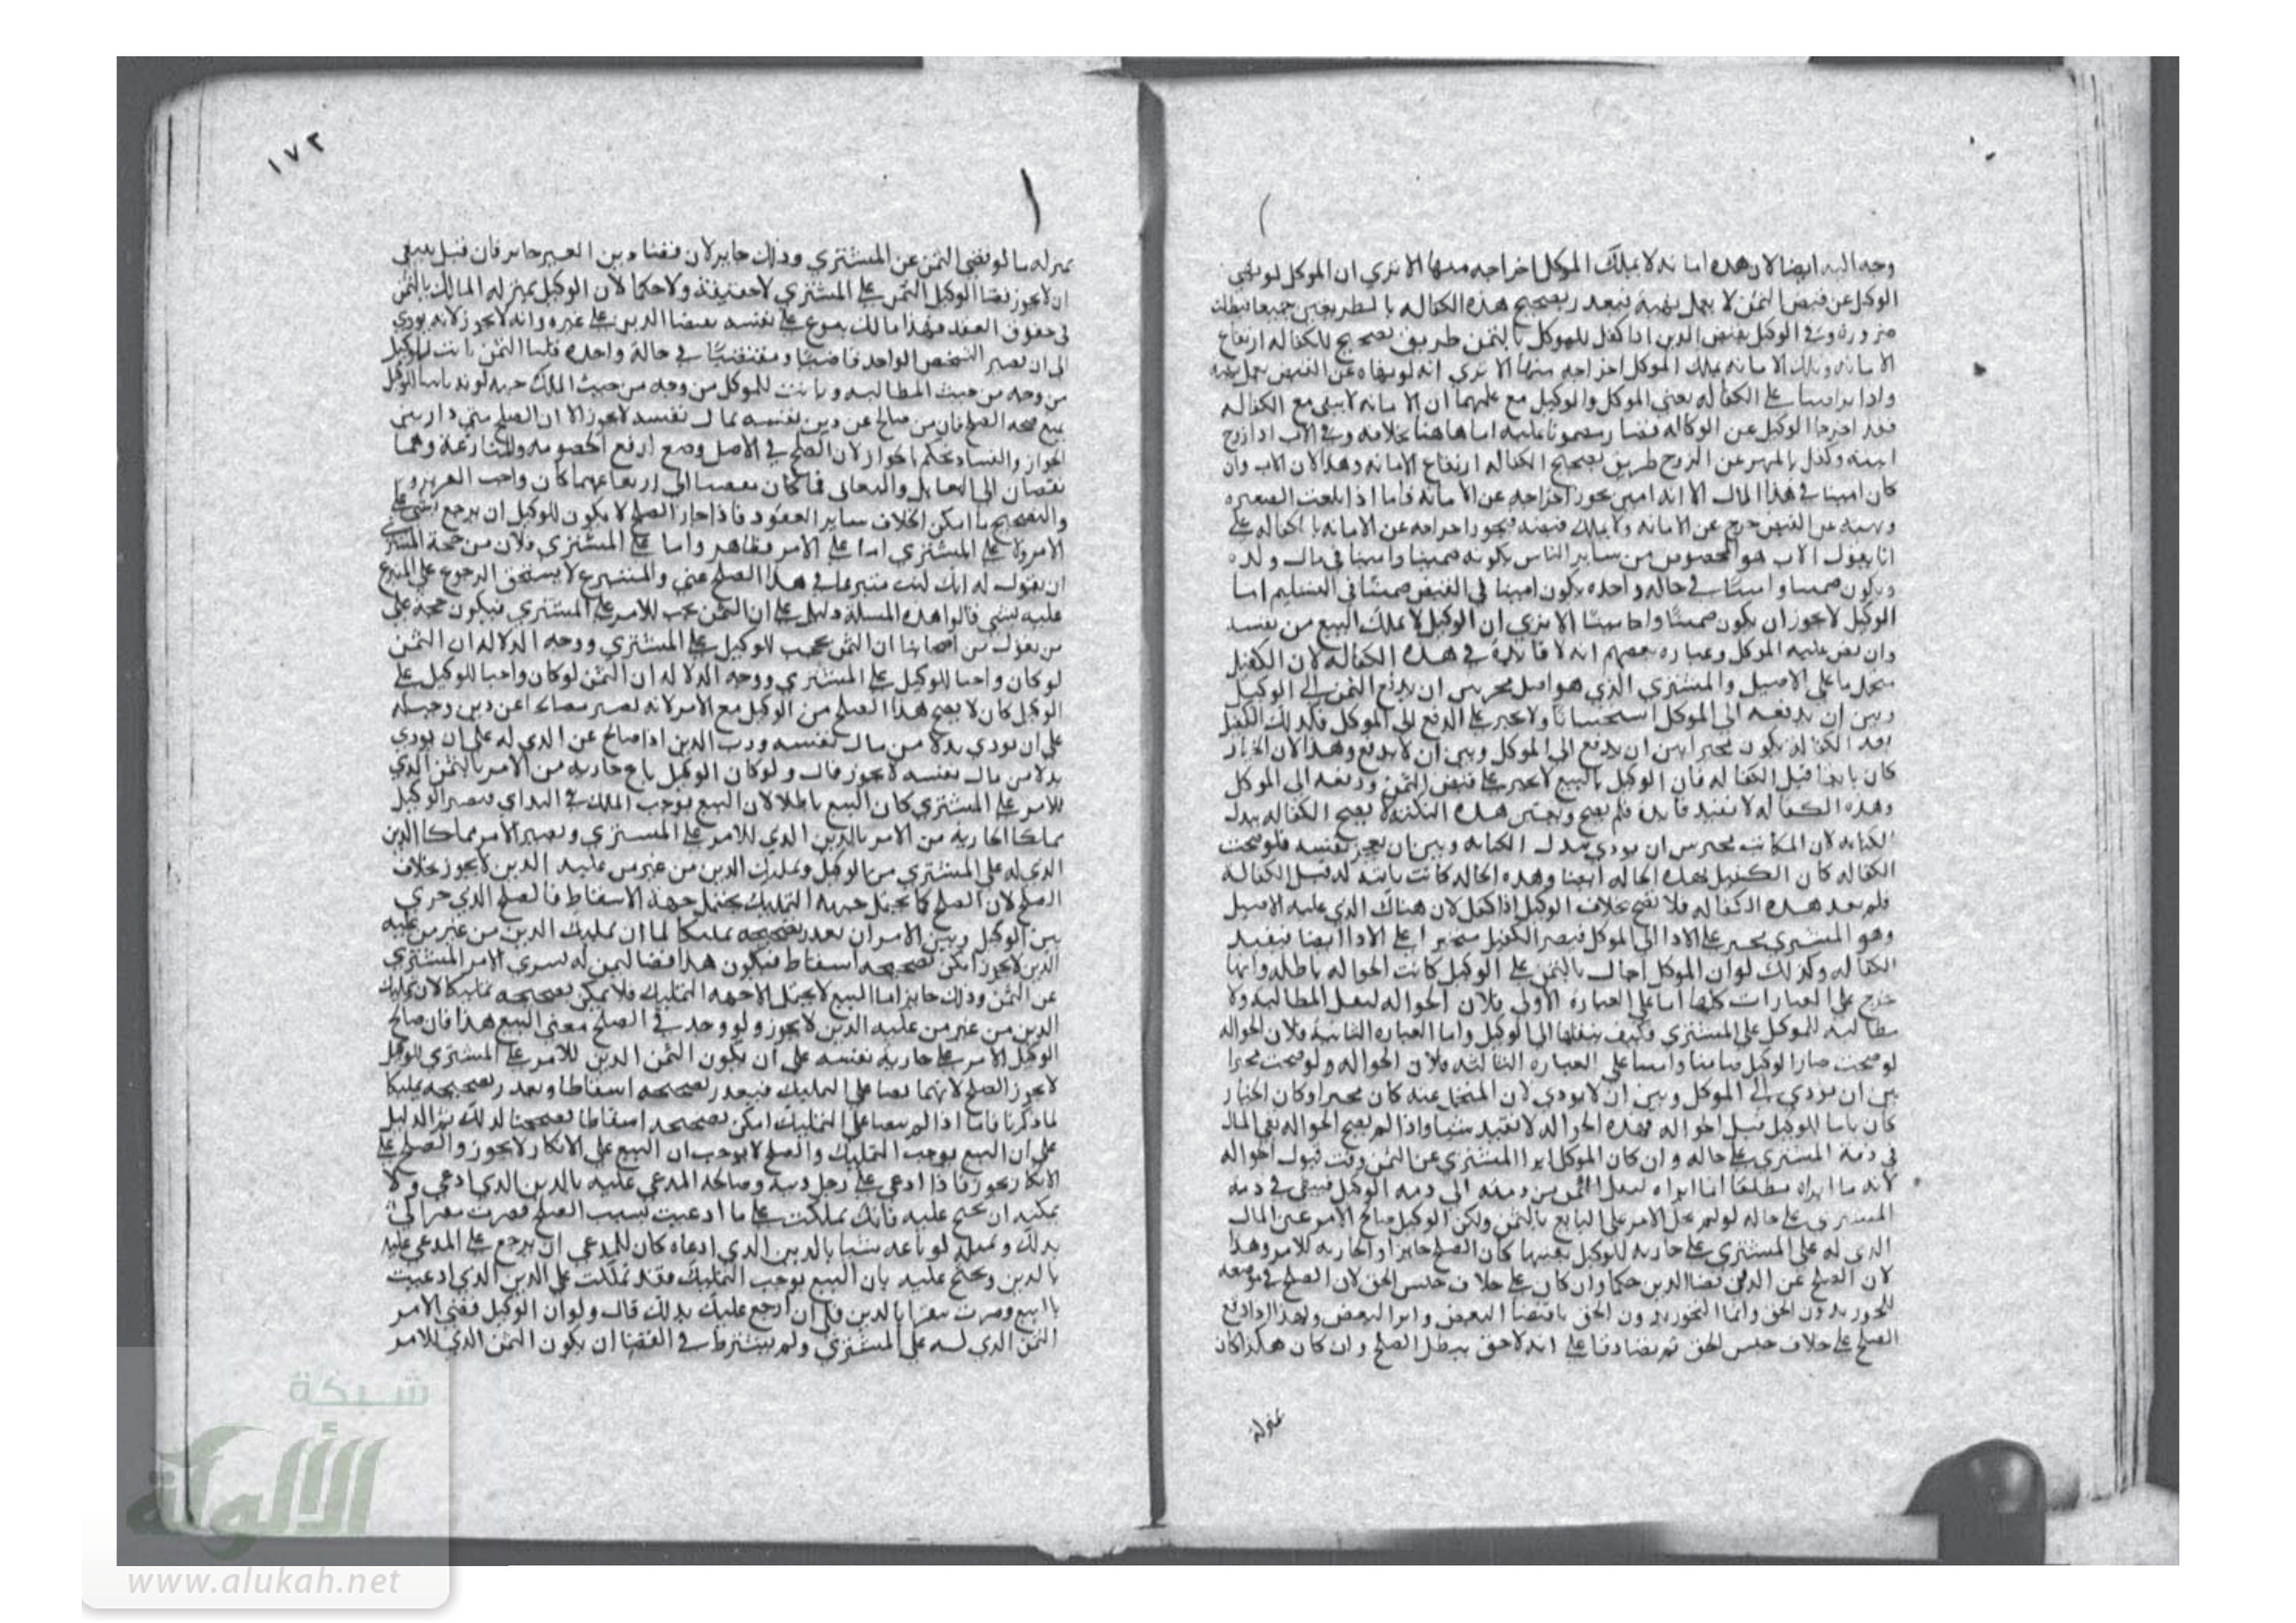 وجه اليه ايضا لان هذه امانة لا يملك الموكل اخراجه منها الا تري ان الموكل لو نهى
الوكيل عن قبض الثمن لا يعمل نهيه فبعد تصحيح هذه الكفاله جميعا فبطلت
ضرورة وفي الوكيل بقبض الدين اذا كفل للموكل بالثمن طريق تصحيح الكفاله ارتفاع
الامانه وتلك الامانه يملك الموكل اخراجه منها الا تري انه لو نهاه عن القبض يعمل نهيه
واذا تراضيا على الكفاله يعني الموكل والوكيل مع علمهما ان الامانه لا تبقى مع الكفاله
فقد اخرجا الوكيل عن الوكاله مضمونا عليه اما هاهنا بخلافه وفي الاب اذا زوج
ابنته وكفل بالمهر عن الزوج طريق تصحيح الكفاله ارتفاع الامانه وهذا لان الاب وان
كان امينا في هذا المال الا انه امين يجوز اخراجه عن الامانه فاما اذا بلغت الصغيره
ونهته عن القبض خرج عن الامانه ولا يملك قبضه فيجوز اخراجه عن الامانه بالكفاله على
انا نقول الاب هو المخصوص من ساير الناس بكونه ضمينا وامينا في مال ولده
ويكون ضمينا وامينا في حاله واحده يكون امينا في القبض ضمينا في التسليم اما
الوكيل لا يجوز ان يكون ضمينا وامينا الا تري ان الوكيل لا يملك البيع من نفسه
وان نص عليه الموكل وعباره بعضهم انه لا فائدة في هذه الكفاله لان الكفيل
يتحمل ما على الاصيل والمشتري الذي هو اصل مخير بين ان يدفع الثمن الى الوكيل
وبين ان يدفعه الى الموكل استحسانا ولا يجبر على الدفع الى الموكل فكذلك الكفيل
بعد الكفاله يكون مخيرا بين ان يدفع الى الموكل وبين ان لا يدفع وهذا لان الخيار
كان ثابتا قبل الكفاله فان الوكيل بالبيع لا يجبر على قبض الثمن ودفعه الى الموكل
وهذه الكفاله لا تفيد فائدة فلم تصح وبعين هذه النكتة لا تصح الكفاله ببدل
الكتابه لان المكاتب مخير بين ان يودي بدل الكتابه وبين ان يعجز نفسه فلو صحت
الكفاله كان الكفيل بهذه الحاله ايضا وهذه الحاله كانت ثابتة له قبل الكفاله
فلم تفد هذه الكفاله فلا تصح بخلاف الوكيل اذا كفل لان هناك الذي عليه الاصيل
وهو المشتري يجبر على الادا الى الموكل فيصير الكفيل مجبرا على الادا ايضا فيفيد
الكفاله وكذلك لو ان الموكل احال بالثمن على الوكيل كانت الحواله باطله وانها
تخرج على العبارات كلها اما على العباره الاولى فلان الحواله لنقل المطالبه ولا
مطالبه للموكل على المشتري فكيف ينقلها الى الوكيل واما العباره الثانيه فلان الحواله
لو صحت صار الوكيل ضامنا وامينا على العباره الثالثه فلان الحواله ولو صحت مخيرا
بين ان يودي الى الموكل وبين ان لا يودي لان المتحمل عنه كان مخيرا وكان الخيار
كان ثابتا للوكيل قبل الحواله فهذه الحواله لا تفيد شيا واذا لم تصح الحواله بقي المال
في ذمة المشتري على حاله وان كان الموكل ابرا المشتري عن الثمن وقت قبول الحواله
لانه ما ابراه مطلقا انما ابراه لنقل الثمن من ذمته الى ذمه الوكيل فيبقى في ذمه
المشتري على حاله لو لم يحل الامر على البايع بالثمن ولكن الوكيل صالح الامر عن المال
الذي له على المشتري على جاريه للوكيل بعينها كان الصلح جايزا والجاريه للامر وهذا
لان الصلح عن الدين قضا الدين حكما وان كان على خلاف جنس الحق لان الصلح في موضعه
للتجوز بدون الحق وانما التجوز بدون الحق باقتضا البعض وابرا البعض ولهذا اذا وقع
الصلح على خلاف جنس الحق ثم تصادقا على انه لا حق يبطل الصلح وان كان هكذا كان
بمنزلة
١٧٢
بمنزله ما لو قضى الثمن عن المشتري وذلك جايز لان قضا دين الغير جايز فان قيل ينبغي
ان لا يجوز قضا الوكيل الثمن على المشتري لا حقيقة ولا حكما لان الوكيل بمنزله المالك بالثمن
في حقوق العقد فهذا مالك على نفسه بقضا الدين على غيره وانه لا يجوز لانه يودي
الى ان يصير الشخص الواحد قاضيا ومقتضيا في حالة واحده قلنا الثمن ثابت للوكيل
من وجه من حيث المطالبه وثابت للموكل من وجه من حيث الملك
يمنع صحه الصلح فان من صالح عن دين نفسه بمال نفسه لا يجوز الا ان الصلح متى دار بين
الجواز والفساد يحكم بالجواز لان الصلح في الاصل وضع لرفع الخصومه والمنازعة وهما
والتصحيح ما امكن بخلاف ساير العقود فاذا جاز الصلح لا يكون للوكيل ان يرجع بشي على
الامر ولا على المشتري اما على الامر فظاهر واما على المشتري فلان من حجة المشتري
ان يقول له انك كنت متبرعا في هذا الصلح عني والمتبرع لا يستحق الرجوع على المتبرع
عليه بشي قالوا هذه المسلة دليل على ان الثمن يجب للامر على المشتري فيكون حجة على
من يقول من اصحابنا ان الثمن يجب للوكيل على المشتري ووجه الدلاله ان الثمن
لو كان واجبا للوكيل على المشتري ووجه الدلاله ان الثمن لو كان واجبا للوكيل على
الوكيل كان لا يصح هذا الصلح من الوكيل مع الامر لانه يصير مصالحا عن دين وجب له
على ان يودي بدلا من مال نفسه ورب الدين اذا صالح عن الذي له على ان يودي
بدلا من مال نفسه لا يجوز قال ولو كان الوكيل باع جاريه من الامر بالثمن الذي
للامر على المشتري كان البيع باطلا لان البيع يوجب الملك في البداي فيصير الوكيل
مملكا الجاريه من الامر بالدين الذي للامر على المشتري ويصير الامر مملكا الدين
الذي له على المشتري من الوكيل وتمليك الدين من غير من عليه الدين لا يجوز بخلاف
الصلح لان الصلح كما يحتمل جهة التمليك يحتمل جهة الاسقاط فالصلح الذي جرى
بين الوكيل وبين الامر ان تعذر تصحيحه تمليكا لما ان تمليك الدين من غير من عليه
الدين لا يجوز امكن تصحيحه اسقاطا فيكون هذا قضا ليبري الامر المشتري
عن الثمن وذلك جايز اما البيع لا يحتمل الا جهة التمليك فلا يمكن تصحيحه تمليكا لان تمليك
الدين من غير من عليه الدين لا يجوز ولو وجد في الصلح معنى البيع هذا فان صالح
الوكيل الامر على جاريه نفسه على ان يكون الثمن الدين للامر على المشتري للوكيل
لا يجوز الصلح لانهما نصا على التمليك فيتعذر تصحيحه اسقاطا وتعذر تصحيحه تمليكا
لما ذكرنا فاما اذا لم ينصا على التمليك امكن تصحيحه اسقاطا فصححنا لذلك ثم الدليل
على ان البيع يوجب التمليك والصلح لا يوجب ان البيع على الانكار لا يجوز والصلح على
الانكار يجوز فاذا ادعي على رجل دينا وصالحه المدعي عليه بالدين الذي ادعي ولا
يمكنه ان يحتج عليه فانك تملكت على ما ادعيت بسبب الصلح فصرت مقرا لي
بذلك وبمثله لو باعه شيا بالدين الذي ادعاه كان للمدعي ان يرجع على المدعي عليه
بالدين ويحتج عليه بان البيع يوجب التمليك فقد تملكت على الدين الذي ادعيت
بالبيع وصرت مقرا بالدين فلي ان ارجع عليك بذلك قال ولو ان الوكيل قضى الامر
الثمن الذي له على المشتري ولم يشترط في القضا ان يكون الثمن الذي للامر
شبكة
الألوكة
www.alukah.net